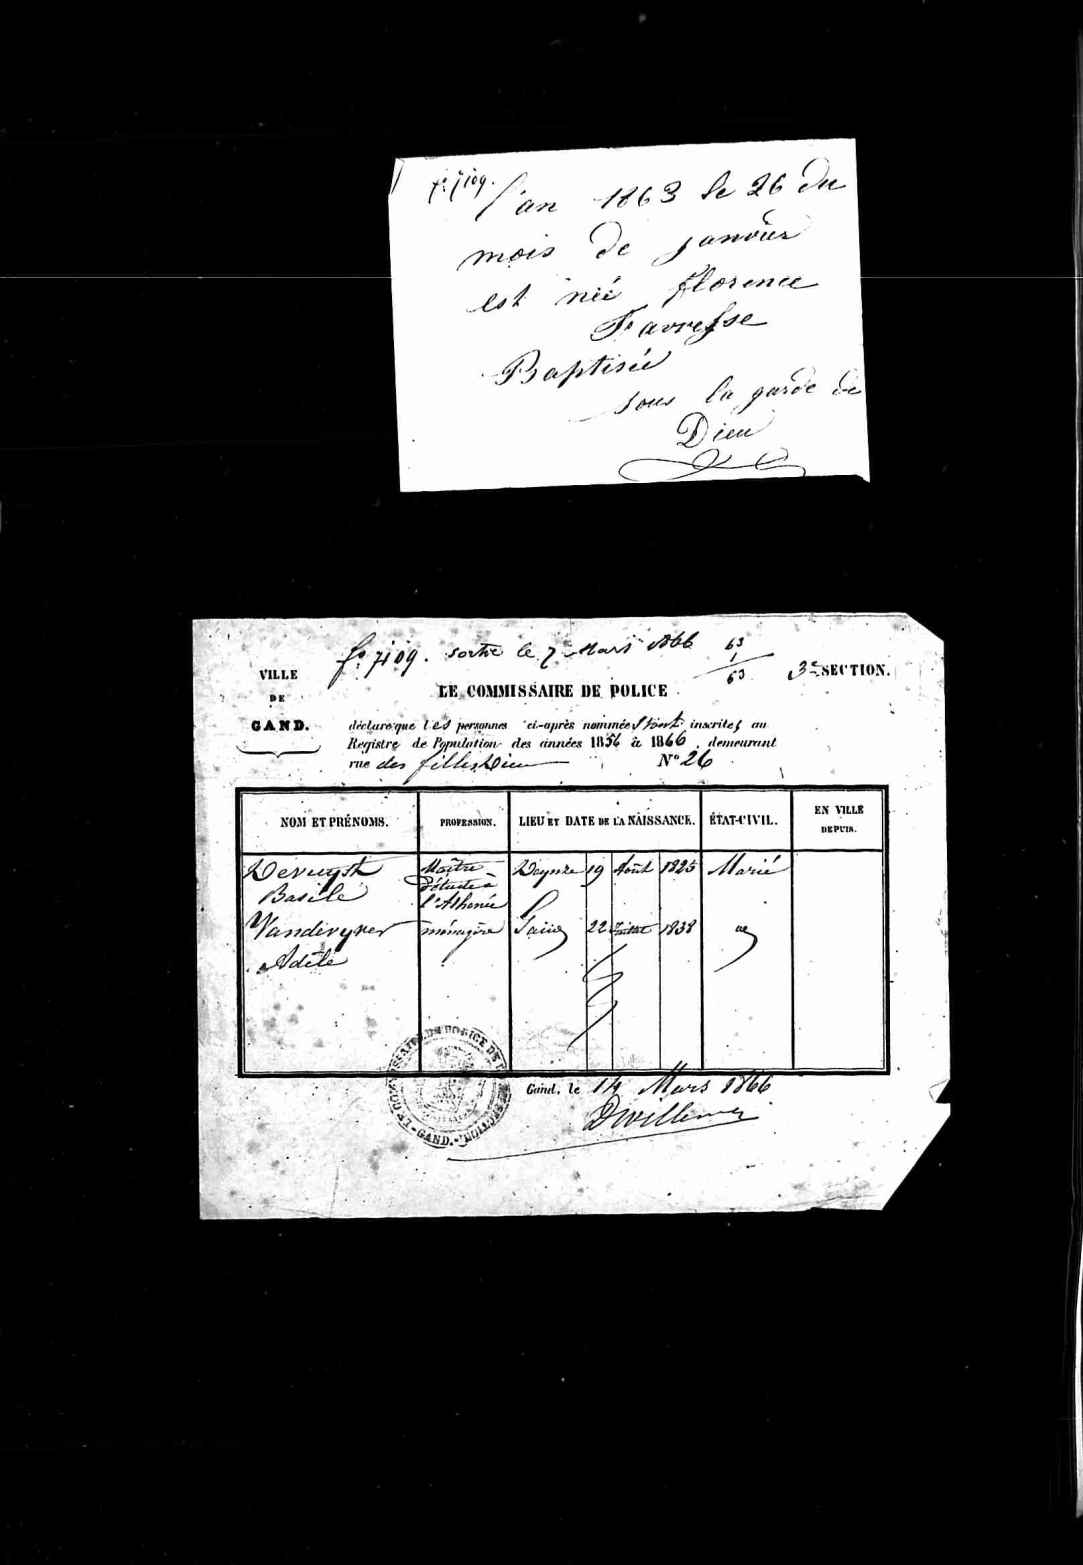 fº 7109.
l'an 1863 le 26 du
mois de janvier
est néé florence
Favresse
Baptisée
sous la garde de
Dieu
fº 7109. sortie le 7 Mars 1866 63/63
3e SECTION.
VILLE
DE
GAND.
LE COMMISSAIRE DE POLICE
déclare que les personnes ci-après nommées sont inscrites au
Registre de Population des années 1856 à 1866 demeurant
rue des filles Dieu Nº 26
NOM ET PRÉNOMS. PROFESSION. LIEU ET DATE DE LA NAISSANCE. ÉTAT-CIVIL. EN VILLE DEPUIS.
Devuyst Maître Deynze 19 Août 1825 Marié
Basile d'étude à
l'Athenée
Vandevyver ménagère 22 Juillet 1838
Adèle
COMMISSAIRE DE POLICE DE SECTION. GAND.
Gand, le 14 Mars 1866
DWillems